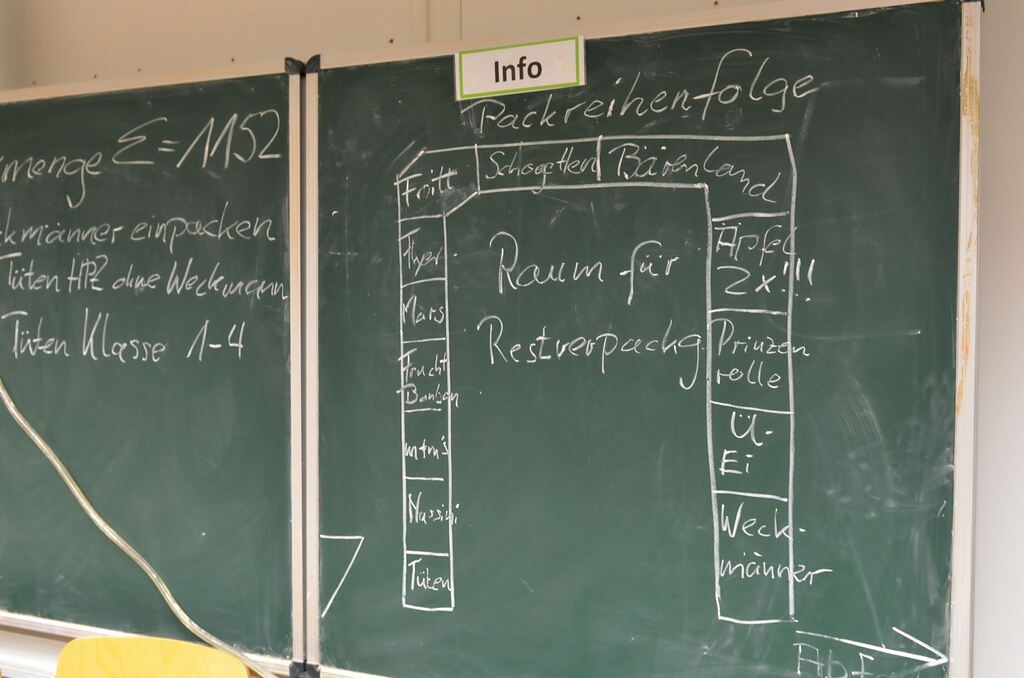 menge Σ=1152
ckmänner einpacken
Tüten HPZ ohne Weckmann
Tüten Klasse 1-4
Info
Packreihenfolge
Fritt
Schogetten
Bärenland
Mars
Frucht
Bonbon
m+m's
Nussini
Tüten
Raum für
Restverpackg.
Äpfel
2x!!!
Prinzen
rolle
Ü-
Ei
Weck-
männer